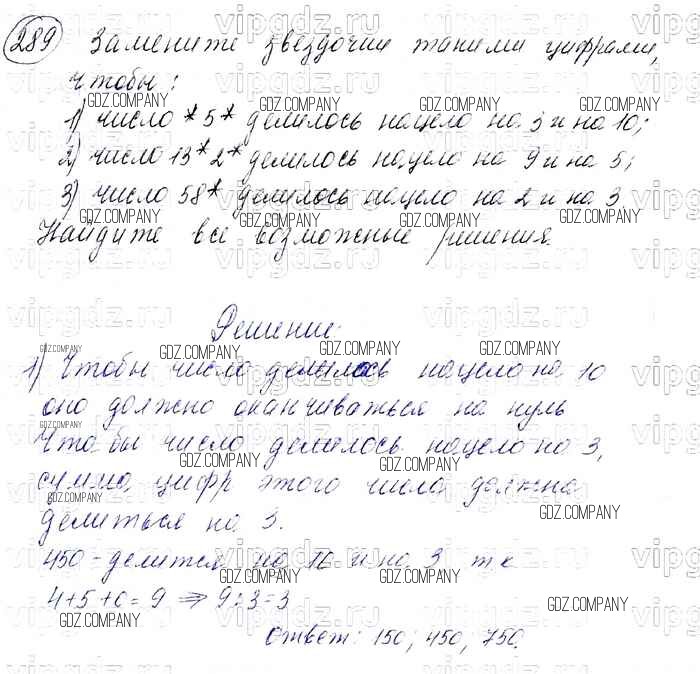 289 Замените звездочки такими цифрами,
чтобы:
1) число *5* делилось нацело на 3 и на 10;
2) число 13*2* делилось нацело на 9 и на 5;
3) число 58* делилось нацело на 2 и на 3
Найдите все возможные решения.
Решение:
1) Чтобы число делилось нацело на 10
оно должно оканчиваться на нуль
Чтобы число делилось нацело на 3,
сумма цифр этого числа должна
делиться на 3.
450 - делится на 10 и на 3 т к
4+5+0=9 ⇒ 9:3=3
Ответ: 150; 450; 750.